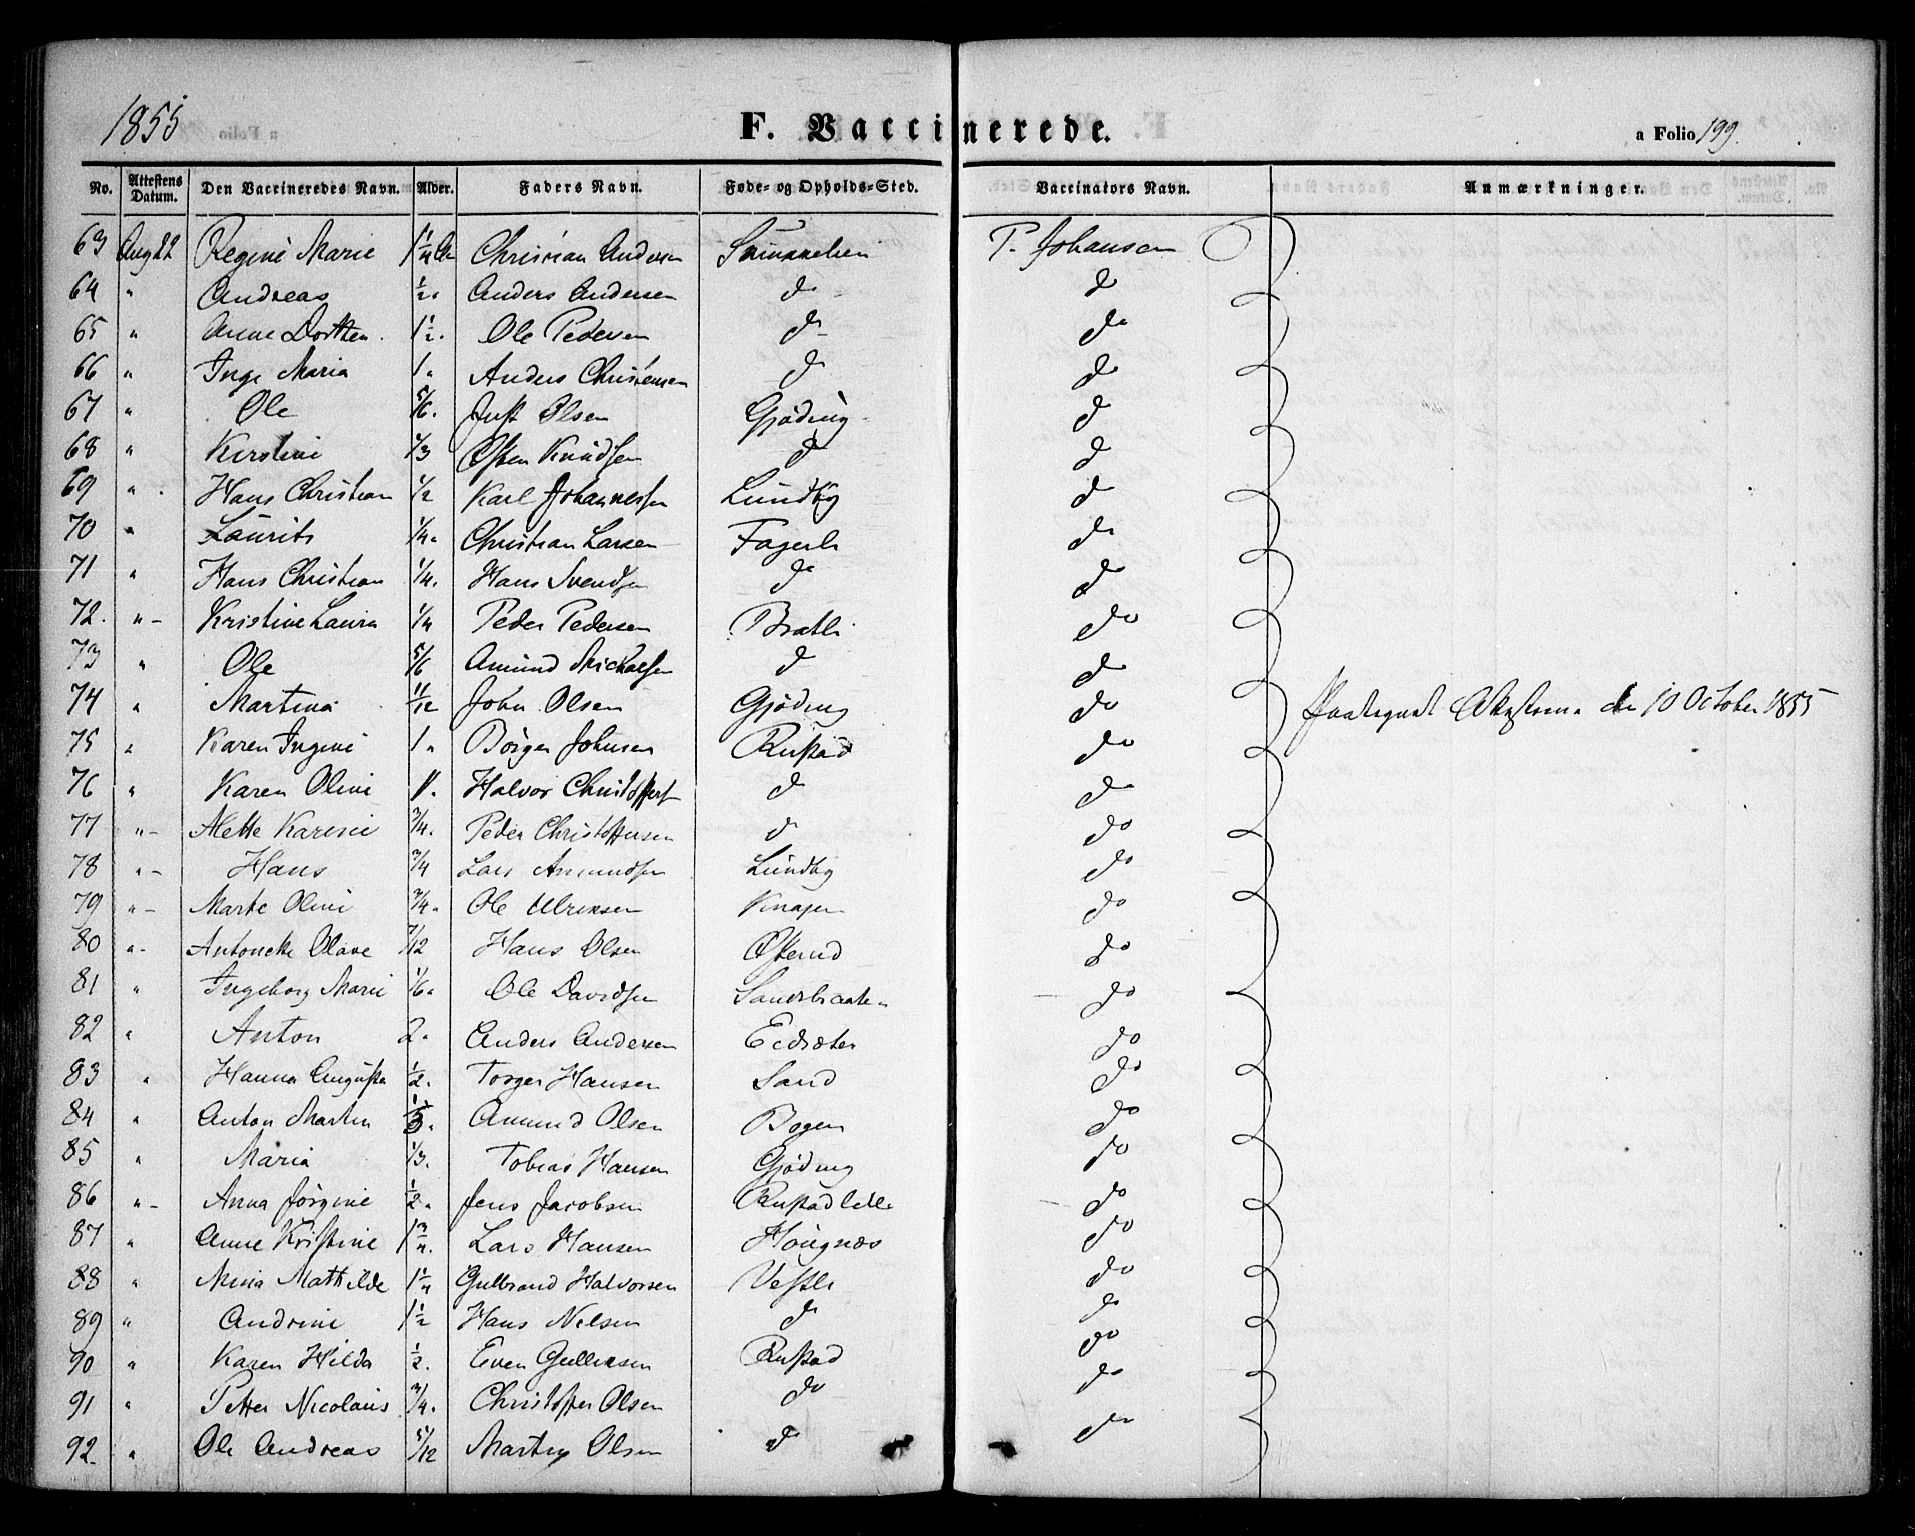 1855
F. Vaccinerede.
a Folio 199.
No. Attestens Datum. Den Vaccineredes Navn. Alder. Faders Navn. Føde- og Opholds-Sted. Vaccinators Navn. Anmærkninger.
63 Aug 22 Regine Marie 1 1/4 Christian Andersen P. Johansen
64 " Andreas 1/2 Anders Andersen do do
65 " Anne Dorthea 1 1/2. Ole Pedersen do do
66 " Inge Maria 1 " Anders Christensen do do
67 " Ole 5/6. Just Olsen Gjøding do
68 " Kirstine 1/3 Østen Knudsen do do
69 " Hans Christian 1/2 Karl Johannessen Lundby do
70 " Laurits 1/4 " Christian Larsen Fagerli do
71 " Hans Christian 1/4. Hans Svendsen do do
72. " Kristine Laura 1/4 Peder Pedersen Bratli do
73 " Ole 5/6 Amund Michaelsen do do
74 " Martina 11/12 John Olsen Gjøding do Paategnet den 10 October 1855
75 " Karen Ingine 1 " Børger Johnsen Rustad do
76 " Karen Oline Halvor Christoffers do do
77 " Mette Karine 3/4. Peder Christoffersen do do
78 " Hans 3/4 Lars Amundsen Lundby do
79 " Marte Oline 3/4 " Ole Ulriksen Knapen do
80 " Antonette Olave 7/12 Hans Olsen Østerud do
81 " Ingeborg Marie 1/6 " Ole Davidsen Sandbraaten do
82 " Anton 2 " Anders Andersen Edsæter do
83 " Hanna Augusta 1/2. Torger Hansen Sand do
84 " Anton Martin Amund Olsen Bogen do
85 " Maria 1/3. Tobias Hansen Gjøding do
86 " Anna Jørgine 1/2 " Jens Jacobsen Rustad lille do
87 " Anne Kristine 1 3/4. Lars Hansen Haugnæs do
88 " Mina Mathilde 1 1/4 Gulbrand Halvorsen Vestli do
89 " Andrine 1 1/2 Hans Nilsen do do
90 " Karen Hilda 1/2. Even Gulliksen Rustad do
91 " Petter Nicolaus 3/4. Christoffer Olsen do do
92. " Ole Andreas 5/12 Martin Olsen do do